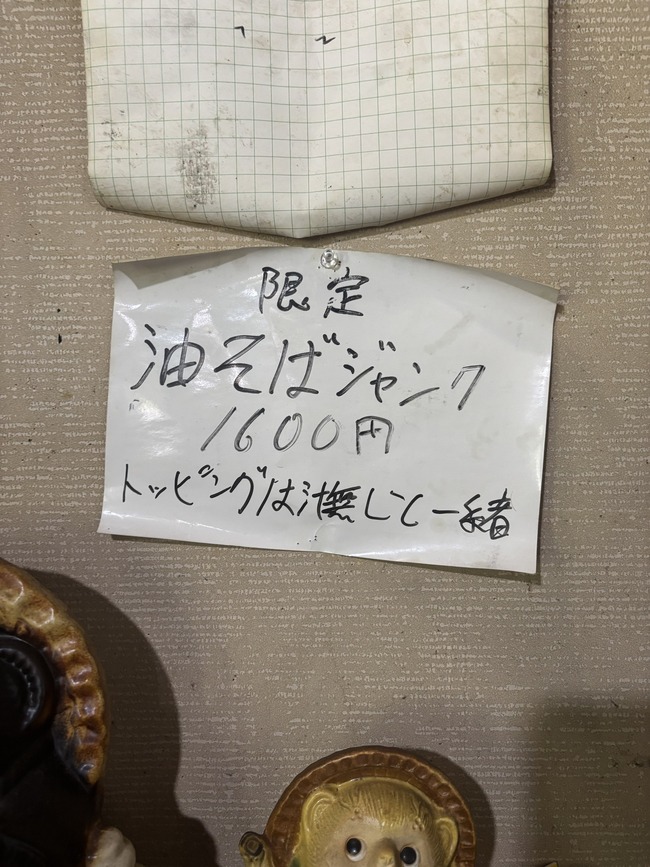 限定
油そばジャンク
1600円
トッピングは汁無しと一緒